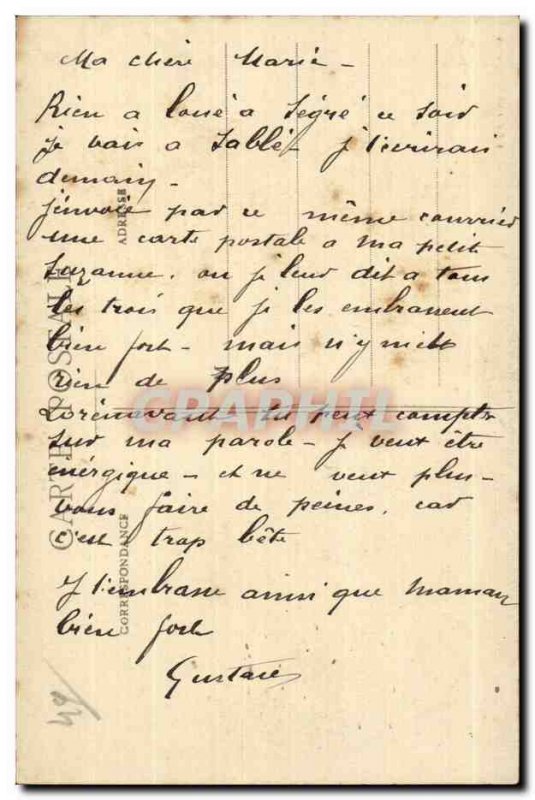 Ma chère Marie -
Rien a loué a Segré ce soir
je vais a Sablé - j t'ecrirais
demain -
j'envoie par ce même courrier
une carte postale a ma petite
Suzanne. ou j leur dit a tous
les trois que j les embrassent
bien fort - mais n'y mett
rien de plus
Dorénavant tu peux compter
sur ma parole - j veux être
énérgique - et ne veux plus
vous faire de peines, car
c'est trop bête
J t'embrasse ainsi que maman
bien fort
Gustave
CARTE POSTALE
ADRESSE
CORRESPONDANCE
GRAPHIL